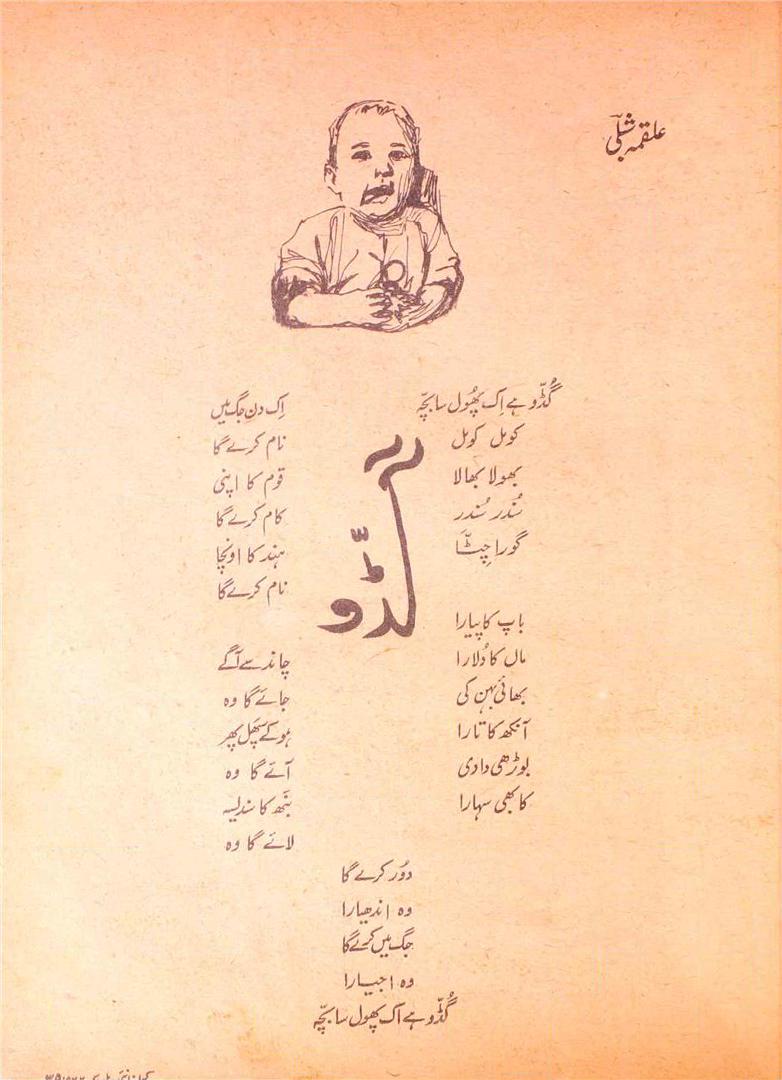 علقمہ شبلی
گڈّو
گُڈّو ہے اِک پھُول سا بچّہ
کومل کومل
بھولا بھالا
سُندر سُندر
گورا چِٹّا
باپ کا پیارا
ماں کا دُلارا
بھائی بہن کی
آنکھ کا تارا
بوڑھی دادی
کا بھی سہارا
اِک دن جگ میں
نام کرے گا
قوم کا اپنی
کام کرے گا
ہند کا اونچا
نام کرے گا
چاند سے آگے
جائے گا وہ
ہو کے سپھل پھر
آئے گا وہ
نبھ کا سندیسہ
لائے گا وہ
دُور کرے گا
وہ اندھیارا
جگ میں کرے گا
وہ اجیارا
گُڈّو ہے اک پھول سا بچّہ